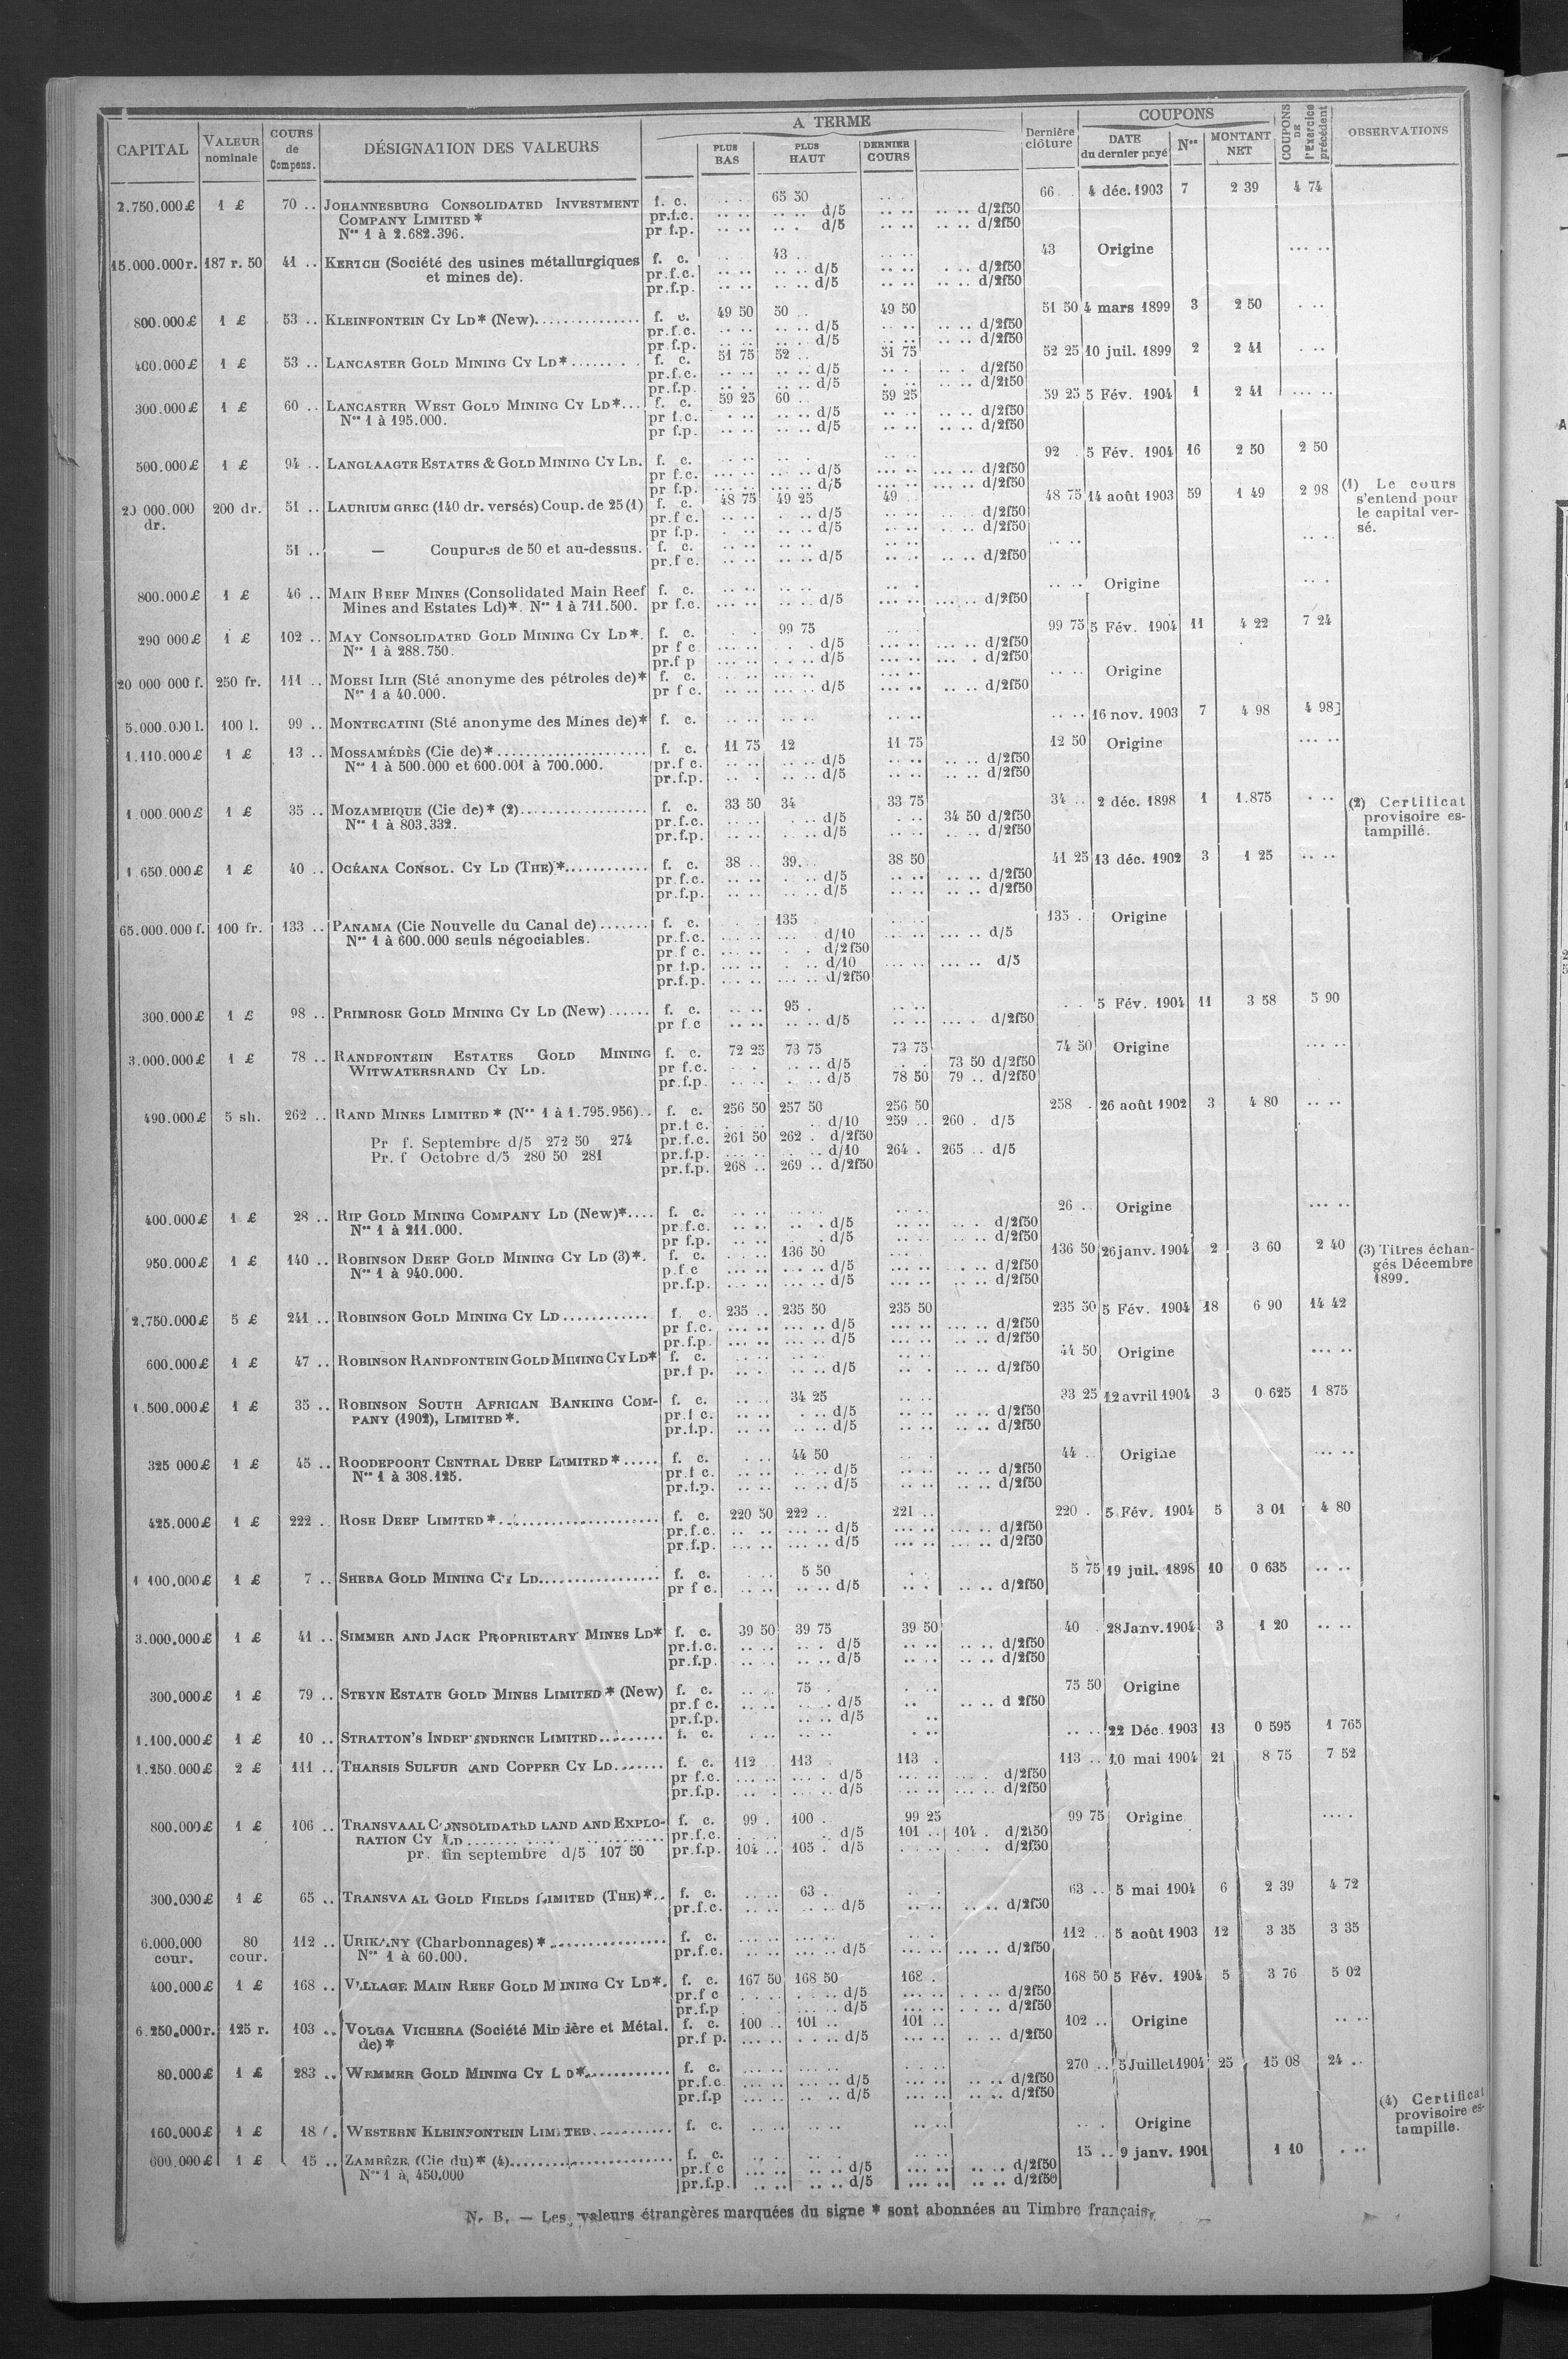 CAPITAL VALEUR nominale COURS de Compens. DÉSIGNATION DES VALEURS A TERME PLUS BAS PLUS HAUT DERNIER COURS Dernière clôture COUPONS DATE du dernier payé Nos MONTANT NET COUPONS DE l'Exercice précédent OBSERVATIONS
2.750.000 £ 1 £ 70 .. JOHANNESBURG CONSOLIDATED INVESTMENT f. c. 65 50 66 . 4 déc. 1903 7 2 39 4 74
COMPANY LIMITED * pr.f.c. .. .. .. .. d/5 .. .. .. .. d/2f50
Nos 1 à 2.682.396. pr f.p. .. .. .. . d/5 .. .. .. .. d/2f50
15.000.000 r. 187 r. 50 41 .. KERTCH (Société des usines métallurgiques f. c. 43 . 43 Origine ... ..
et mines de). pr.f.c. .. .. .. .. d/5 .. .. . .. d/2f50
pr.f.p. .. .. .. .. d/5 .. .. .. .. d/2f50
800.000 £ 1 £ 53 .. KLEINFONTEIN CY LD* (New). f. c. 49 50 50 .. 49 50 51 50 4 mars 1899 3 2 50 . ..
pr.f.c. .. .. .. .. d/5 .. .. .. .. d/2f50
pr f.p. .. .. .. .. d/5 .. .. .. .. d/2f50
400.000 £ 1 £ 53 .. LANCASTER GOLD MINING CY LD* f. c. 51 75 52 .. 51 75 52 25 10 juil. 1899 2 2 41 . ..
pr.f.c. .. .. .. .. d/5 .. . .. . d/2f50
pr.f.p. .. . .. .. d/5 . .. .. .. d/2f50
300.000 £ 1 £ 60 .. LANCASTER WEST GOLD MINING CY LD* f. c. 59 25 60 .. 59 25 59 25 5 Fév. 1904 1 2 41 ... ..
Nos 1 à 195.000. pr f.c. . .. .. .. d/5 .. .. .. .. d/2f50
pr f.p. .. .. .. .. d/5 .. .. .. .. d/2f50
500.000 £ 1 £ 94 .. LANGLAAGTE ESTATES & GOLD MINING CY LD. f. c. 92 . 5 Fév. 1904 16 2 50 2 50
pr f.c. ... .. ... .. d/5 ... .. ... .. d/2f50
pr f.p. ... .. ... .. d/5 ... .. ... .. d/2f50
20 000.000 dr. 200 dr. 51 .. LAURIUM GREC (140 dr. versés) Coup. de 25 (1) f. c. 48 75 49 25 49 .. 48 75 14 août 1903 59 1 49 2 98 (1) Le cours s'entend pour le capital versé.
pr.f c. .. .. . .. d/5 .. .. .. .. d/2f50
pr f.p. . .. .. .. d/5 .. .. .. .. d/2f50
51 .. — Coupures de 50 et au-dessus. f. c. .. .. .. .. .. .. .. .. .. ..
pr.f c. .. .. .. .. d/5 .. .. .. .. d/2f50
800.000 £ 1 £ 46 .. MAIN REEF MINES (Consolidated Main Reef f. c. .. .. .. .. .. . .. .. Origine .. .
Mines and Estates Ld)*. Nos 1 à 711.500. pr f.c. ... .. .. .. d/5 ... .. ... .. d/2f50
290 000 £ 1 £ 102 .. MAY CONSOLIDATED GOLD MINING CY LD*. f. c. 99 75 99 75 5 Fév. 1904 11 4 22 7 24
Nos 1 à 288.750. pr f c. ... .. . . d/5 ... .. ... .. d/2f50
pr.f p ... .. .. .. d/5 ... .. ... . d/2f50
20 000 000 f. 250 fr. 111 .. MOESI ILIR (Sté anonyme des pétroles de)* f. c. .. .. .. .. Origine
Nos 1 à 40.000. pr f c. .. .. ... .. d/5 ... .. .. .. d/2f50
5.000.000 l. 100 l. 99 .. MONTECATINI (Sté anonyme des Mines de)* f. c. .. .. .. .. .. .. .. .. 16 nov. 1903 7 4 98 4 98
1.110.000 £ 1 £ 13 .. MOSSAMÉDÈS (Cie de)* f. c. 11 75 12 11 75 12 50 Origine ... ..
Nos 1 à 500.000 et 600.001 à 700.000. pr.f c. .. .. .. .. d/5 .. .. .. .. d/2f50
pr.f.p. .. . .. .. d/5 .. .. .. .. d/2f50
1.000.000 £ 1 £ 35 .. MOZAMBIQUE (Cie de)* (2) f. c. 33 50 34 33 75 34 .. 2 déc. 1898 1 1.875 . .. (2) Certificat provisoire estampillé.
Nos 1 à 803.332. pr.f.c. .. . . .. d/5 . .. 34 50 d/2f50
pr.f.p. .. .. . .. d/5 .. .. .. .. d/2f50
1.650.000 £ 1 £ 40 .. OCÉANA CONSOL. CY LD (THE)* f. c. 38 .. 39. 38 50 41 25 13 déc. 1902 3 1 25 .. ..
pr.f.c. .. .. .. .. d/5 .. .. .. .. d/2f50
pr.f.p. .. .. .. .. d/5 .. .. .. .. d/2f50
65.000.000 f. 100 fr. 133 .. PANAMA (Cie Nouvelle du Canal de) f. c. 135 135 . Origine
Nos 1 à 600.000 seuls négociables. pr.f.c. .. .. ... d/10 ... .. ... .. d/5
pr f c. ... .. . . d/2 f50
pr f.p. ... .. . .. d/10 ... .. ... .. d/5
pr.f.p. ... .. ... .. d/2f50
300.000 £ 1 £ 98 .. PRIMROSE GOLD MINING CY LD (New) f. c. 95 . . . 5 Fév. 1904 11 3 58 5 90
pr f.c .. .. .. .. d/5 .. .. ... . d/2f50
3.000.000 £ 1 £ 78 .. RANDFONTEIN ESTATES GOLD MINING f. c. 72 25 73 75 73 75 74 50 Origine ... ..
WITWATERSRAND CY LD. pr f.c. . . .. .. d/5 . . 73 50 d/2f50
pr.f.p. .. .. . .. d/5 78 50 79 .. d/2f50
490.000 £ 5 sh. 262 .. RAND MINES LIMITED * (Nos 1 à 1.795.956) f. c. 256 50 257 50 256 50 258 . 26 août 1902 3 4 80 .. ..
pr.f c. . . . .. d/10 259 .. 260 . d/5
Pr f. Septembre d/5 272 50 274 pr.f.c. 261 50 262 . d/2f50
Pr. f Octobre d/5 280 50 281 pr.f.p. ... .. . .. d/10 264 . 265 .. d/5
pr.f.p. 268 .. 269 .. d/2f50
400.000 £ 1 £ 28 .. RIP GOLD MINING COMPANY LD (New)* f. c. .. .. .. .. .. .. 26 .. Origine ... ..
Nos 1 à 211.000. pr.f.c. .. .. .. . d/5 .. .. .. . d/2f50
pr f.p. .. .. . .. d/5 .. .. .. .. d/2f50
950.000 £ 1 £ 140 .. ROBINSON DEEP GOLD MINING CY LD (3)*. f. c. 136 50 136 50 26 janv. 1904 2 3 60 2 40 (3) Titres échangés Décembre 1899.
Nos 1 à 940.000. p.f c ... .. ... .. d/5 ... .. . .. d/2f50
pr.f.p. ... .. ... .. d/5 ... .. .. .. d/2f50
2.750.000 £ 5 £ 241 .. ROBINSON GOLD MINING CY LD f. c. 235 .. 235 50 235 50 235 50 5 Fév. 1904 18 6 90 14 42
pr f.c. ... .. ... .. d/5 ... .. ... .. d/2f50
pr.f.p. ... .. ... .. d/5 ... .. .. .. d/2f50
600.000 £ 1 £ 47 .. ROBINSON RANDFONTEIN GOLD MINING CY LD* f. c. .. .. .. .. .. .. 44 50 Origine ... ..
pr.f p. .. . .. .. d/5 .. . .. .. d/2f50
1.500.000 £ 1 £ 35 .. ROBINSON SOUTH AFRICAN BANKING COM- f. c. 34 25 33 25 12 avril 1904 3 0 625 1 875
PANY (1902), LIMITED *. pr.f c. .. .. . .. d/5 .. .. .. .. d/2f50
pr.f.p. .. .. .. .. d/5 .. .. .. .. d/2f50
325 000 £ 1 £ 45 .. ROODEPOORT CENTRAL DEEP LIMITED * f. c. 44 50 44 .. Origine ... ..
Nos 1 à 308.125. pr.f c. .. .. .. .. d/5 .. .. .. .. d/2f50
pr.f.p. .. .. .. .. d/5 .. .. .. .. d/2f50
425.000 £ 1 £ 222 .. ROSE DEEP LIMITED * f. c. 220 50 222 .. 221 .. 220 . 5 Fév. 1904 5 3 01 4 80
pr.f.c. .. .. ... .. d/5 ... .. ... .. d/2f50
pr.f.p. ... .. ... .. d/5 ... .. ... .. d/2f50
1 100.000 £ 1 £ 7 .. SHEBA GOLD MINING CY LD f. c. 5 50 5 75 19 juil. 1898 10 0 635 .. ..
pr f c. .. .. .. .. d/5 .. . .. .. d/2f50
3.000.000 £ 1 £ 41 .. SIMMER AND JACK PROPRIETARY MINES LD* f. c. 39 50 39 75 39 50 40 . 28 Janv. 1904 3 1 20 .. ..
pr.f.c. .. .. .. . d/5 .. .. .. .. d/2f50
pr.f.p. .. .. .. .. d/5 .. .. .. .. d/2f50
300.000 £ 1 £ 79 .. STEYN ESTATE GOLD MINES LIMITED * (New) f. c. 75 . 75 50 Origine
pr.f c. .. .. .. .. d/5 .. .. .. d 2f50
pr.f.p. .. .. d/5 ..
1.100.000 £ 1 £ 10 .. STRATTON'S INDEPENDENCE LIMITED f. c. . .. .. .. . .. .. .. 22 Déc. 1903 13 0 595 1 765
1.250.000 £ 2 £ 111 .. THARSIS SULFUR AND COPPER CY LD f. c. 112 113 113 . 113 .. 10 mai 1904 21 8 75 7 52
pr f.c. ... .. ... . d/5 ... .. ... . d/2f50
pr.f.p. .. . . .. .. d/5 ... .. ... .. d/2f50
800.000 £ 1 £ 106 .. TRANSVAAL CONSOLIDATED LAND AND EXPLO- f. c. 99 . 100 . 99 25 99 75 Origine ... .
RATION CY LD pr.f.c. . . . . d/5 101 .. 104 . d/2f50
pr. fin septembre d/5 107 50 pr.f.p. 104 .. 105 . d/5 . . . . d/2f50
300.000 £ 1 £ 65 .. TRANSVAAL GOLD FIELDS LIMITED (THE)* f. c. 63 . 63 .. 5 mai 1904 6 2 39 4 72
pr.f.c. .. .. .. .. d/5 .. .. .. .. d/2f50
6.000.000 cour. 80 cour. 112 .. URIKANY (Charbonnages) * f. c. ... .. ... .. 112 .. 5 août 1903 12 3 35 3 35
Nos 1 à 60.000. pr.f.c. .. .. ... .. d/5 ... .. ... .. d/2f50
400.000 £ 1 £ 168 .. VILLAGE MAIN REEF GOLD MINING CY LD*. f. c. 167 50 168 50 168 . 168 50 5 Fév. 1904 5 3 76 5 02
pr.f c . . . . .. d/5 ... .. . .. . d/2f50
pr.f.p . . . ... .. d/5 ... .. . .. . d/2f50
6.250.000 r. 125 r. 103 .. VOLGA VICHERA (Société Minière et Métal. f. c. 100 .. 101 .. 101 .. 102 .. Origine .. ..
de) * pr.f p. ... .. . .. . d/5 ... .. .. .. d/2f50
80.000 £ 1 £ 283 .. WEMMER GOLD MINING CY LD* f. c. ... .. ... .. 270 .. 5 Juillet 1904 25 15 08 24 ..
pr.f.c. ... .. ... .. d/5 ... .. .. .. d/2f50
pr.f.p ... .. .. .. d/5 ... .. .. .. d/2f50
160.000 £ 1 £ 18 . WESTERN KLEINFONTEIN LIMITED f. c. .. .. .. .. .. .. .. . Origine (4) Certificat provisoire estampille.
600.000 £ 1 £ 15 .. ZAMBÈZE (Cie du)* (4) f. c. 15 .. 9 janv. 1901 1 10 . ..
Nos 1 à 450.000 pr.f.c ... .. .. .. d/5 ... .. .. .. d/2f50
pr.f.p. .. .. .. .. d/5 ... .. .. .. d/2f50
N. B. — Les valeurs étrangères marquées du signe * sont abonnées au Timbre français.